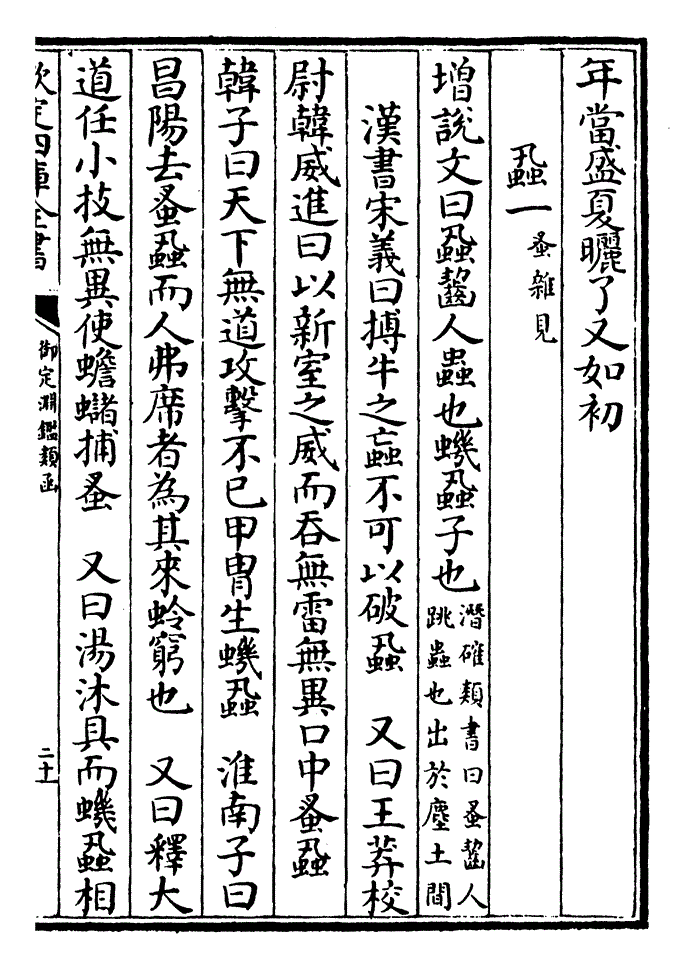 年當盛夏曬了又如初
蝨一蚤雜見
增說文曰蝨齧人蟲也蟣蝨子也潛確類書曰蚤齧人
跳蟲也出於塵土間
漢書宋義曰搏牛之蝱不可以破蝨　又曰王莽校
尉韓威進曰以新室之威而吞無雷無異口中蚤蝨
韓子曰天下無道攻擊不已甲胄生蟣蝨　淮南子曰
昌陽去蚤蝨而人弗席者為其來蛉窮也　又曰釋大
道任小技無異使蟾蠩捕蚤　又曰湯沐具而蟣蝨相
欽定四庫全書
御定淵鑑類函
二十